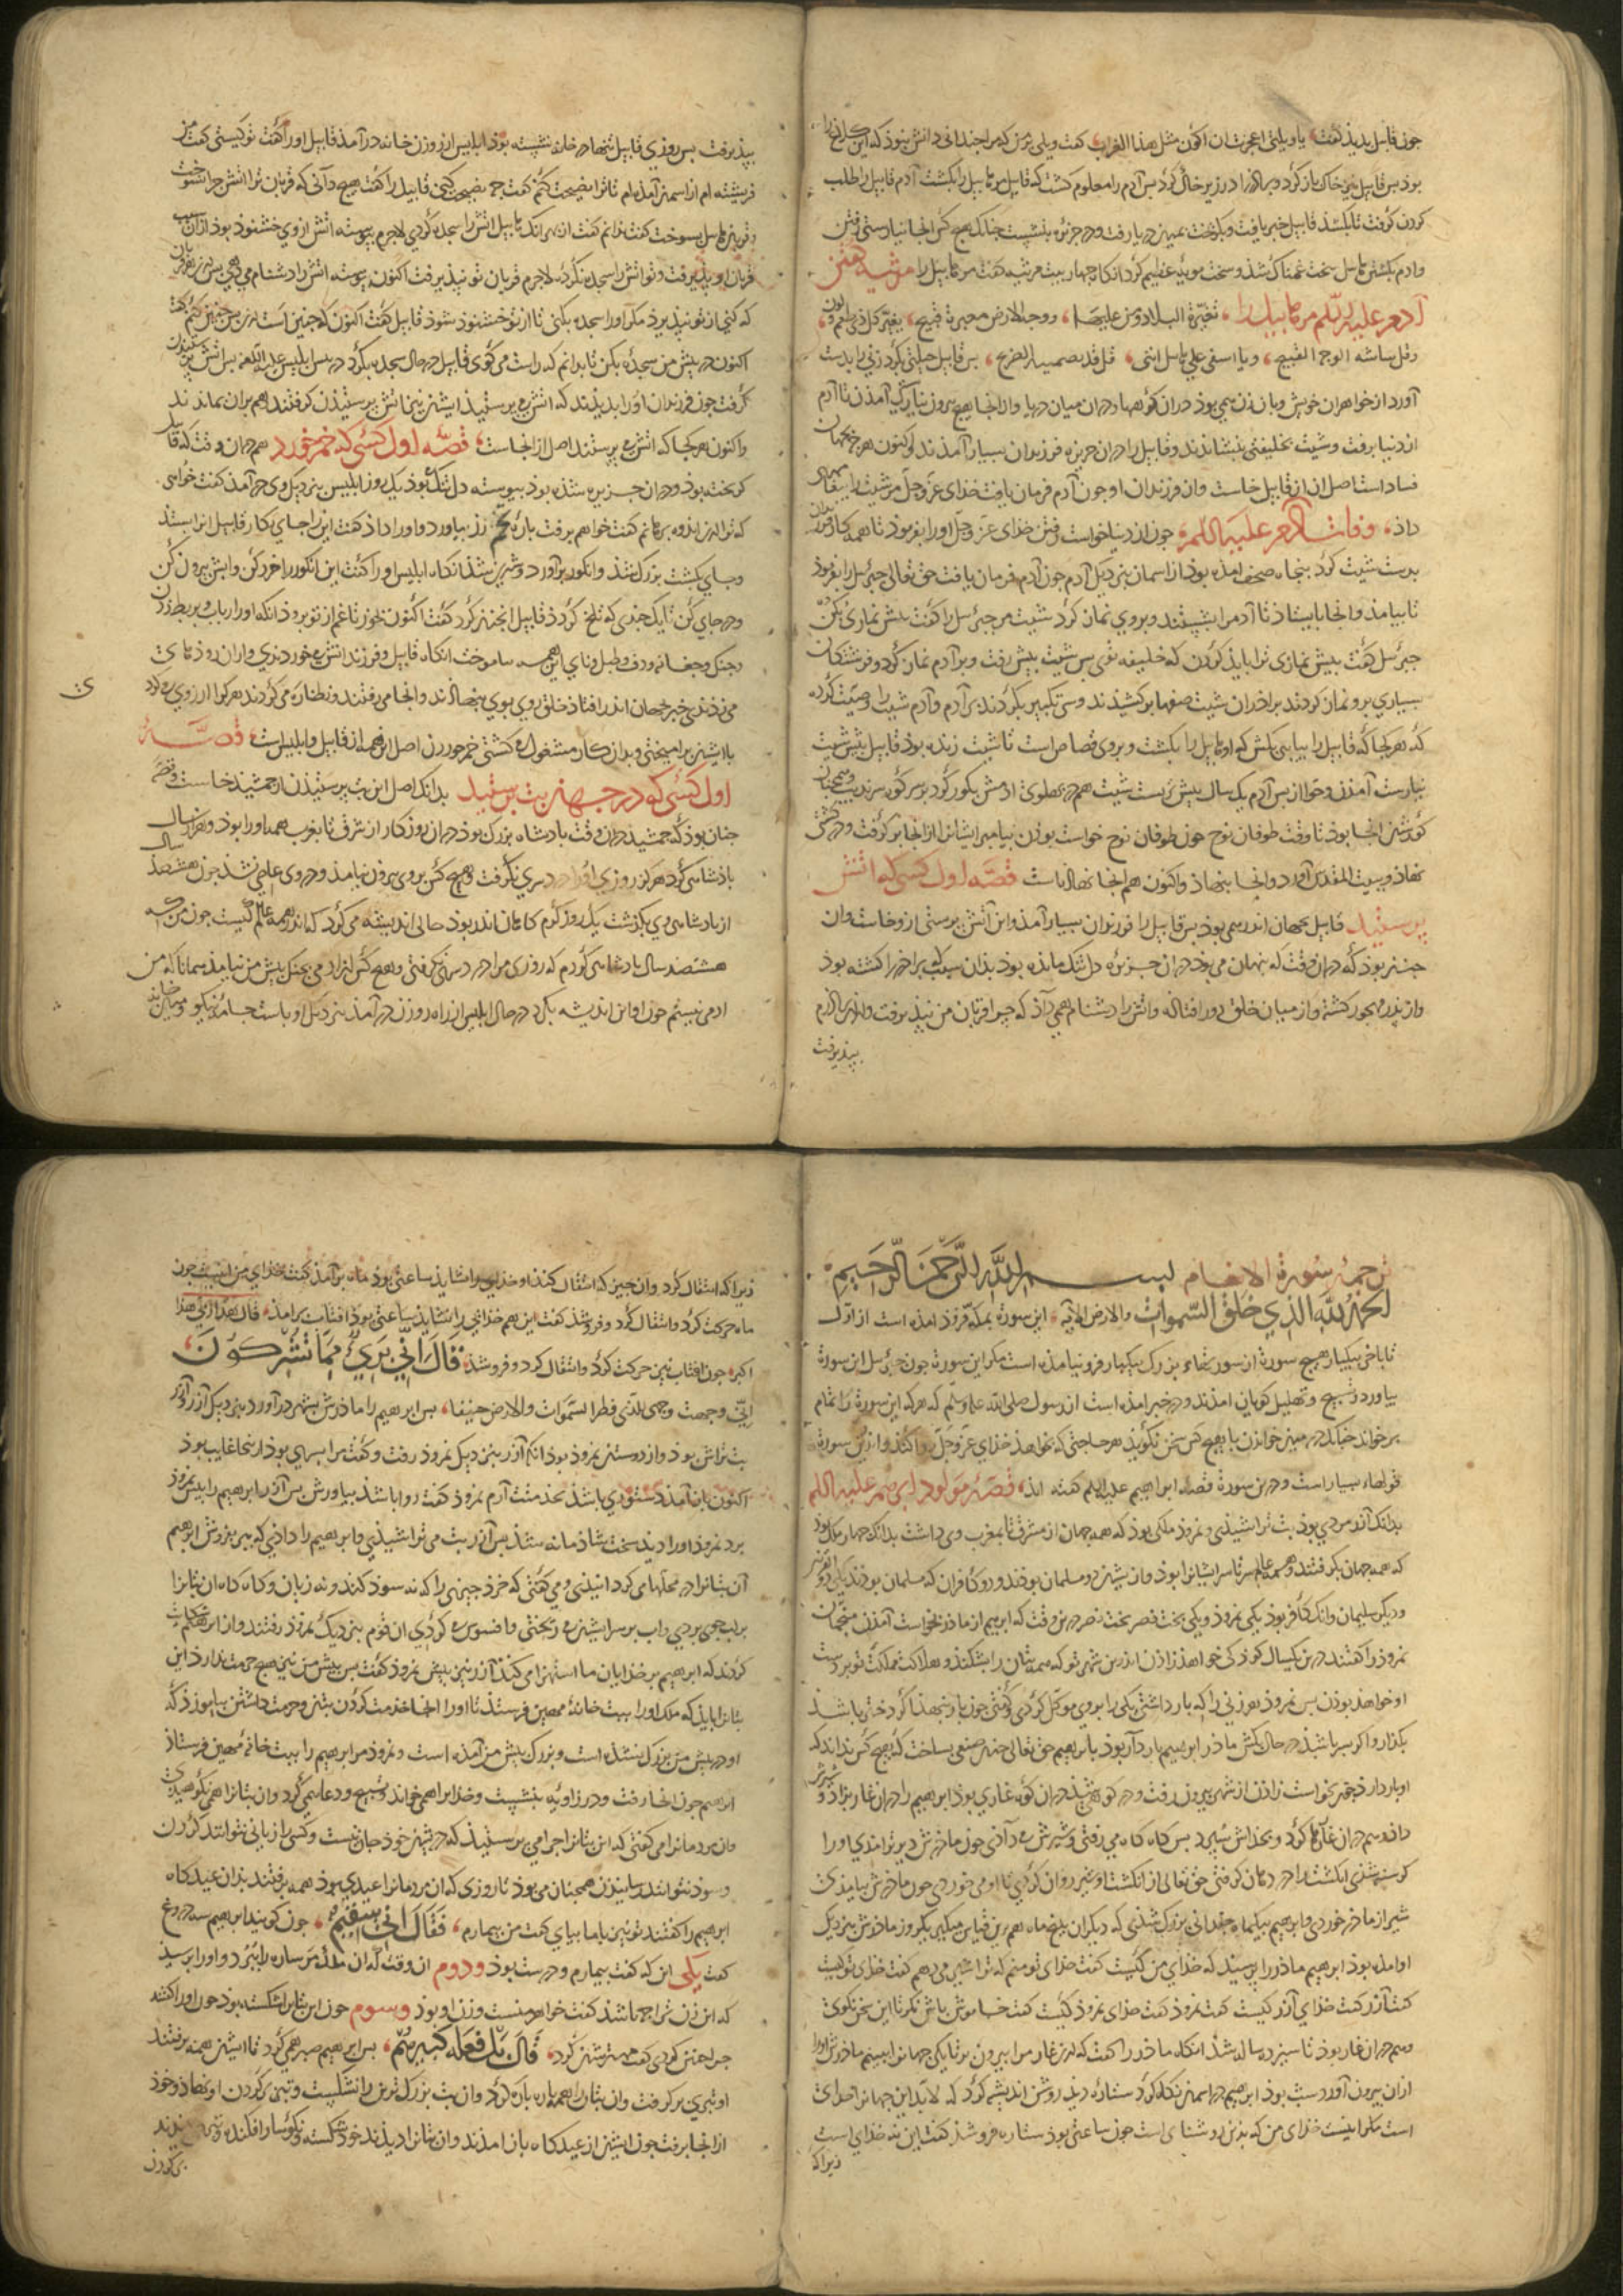 جون قابیل بدید گفت یا ویلتی اعجزت ان اکون مثل هذا الغراب گفت ویلی بر من که مرا جندانی دانش نبود که این کلاغ را
بود بس قابیل نیز خاک باز کرد و برادر را در زیر خاک کرد بس آدم را معلوم گشت که قابیل مر هابیل را بکشت آدم قابیل را طلب
کردن گرفت تا بکشد قابیل خبر یافت و بگریخت بمیان دریا رفت و در جزیره بنشست جنانک هیچ کس انجا نیارستی رفتن
و ادم بکشتن هابیل سخت غمناک شد و سخت مویه عظیم کرد انگاه جهار بیت مرثیه گفت مر هابیل را مرثیه گفتن
آدم علیه السلم مر هابیل را تغیرت البلاد و من علیها ووجه الارض مغبرة قبیح تغیر کل ذی طعم و لون
وقل بشاشه الوجه القبیح ویا اسفی علی هابیل ابنی قتل قد بضمیه الضریح بس قابیل حیلتی بکرد زنی را بدست
آورد از خواهران خویش و با زن همی بود دران کوهها و دران میان دریا و از انجا هیچ بیرون نیارستی آمدن تا آدم
از دنیا برفت و شیث بخلیفتی بنشاندند و قابیل را دران جزیره فرزندان بسیار آمدند و اکنون هر جه بجهان
فساد است اصل ان از قابیل خاست وان فرزندان او جون آدم فرمان یافت خدای عز و جل مر شیث را بیغامبری
داد وفات آدم علیه السلم جون از دنیا خواست رفتن خدای عز و جل او را بفرمود تا همه کار فرزندان
بدست شیث کرد بنجاه صحف امده بود از اسمان بنزدیک آدم جون آدم فرمان یافت حق تعالی جبرئیل را بفرمود
تا بیامد و انجا بایستاد تا آدم را بشستند و بروی نماز کرد شیث مر جبرئیل را گفت بیش نمازی کن
جبرئیل گفت بیش نمازی ترا باید کردن که خلیفه توی بس شیث بیش رفت و بر آدم نماز کرد و فرشتگان
بسیاری برو نماز کردند برادران شیث صفها بر کشیدند و سی تکبیر بکردند بر آدم و آدم شیث را وصیت کرده
که هر کجا که قابیل را بیابی بکش که او هابیل را بکشت و بروی قصاص است تا شیث زنده بود قابیل بیش شیث
نیارست آمدن و حوا از بس آدم یک سال بیش زیست شیث هم در بهلوی ادمش بگور کرد بر سر کوه سرندیب و همجنان
گورشان انجا بود تا وقت طوفان نوح جون طوفان نوح خواست بودن بیامبر ایشانرا از انجا بر گرفت و در کشتی
نهاد و ببیت المقدس آورد و انجا بنهاد و اکنون هم انجا نهاده است قصه اول کسی که اتش
برستید قابیل بجهان اندر همی بود بس قابیل را فرزندان بسیار آمد و این آتش برستی ازو خاست وان
جنان بود که دران وقت که بنهان می بود دران جزیره دل تنگ مانده بود بدان سبب که برادر را کشته بود
و از بدر مهجور گشته و از میان خلق دور افتاده و اتش را دشنام همی داد که جرا قربان من نبذیرفت و از برادرم
ببذیرفت
ببذیرفت بس روزی قابیل تنها در خانه نشسته بود ابلیس از روزن خانه در آمد قابیل او را گفت تو کیستی گفت من
فریشته ام از اسمان آمده ام تا ترا نصیحت کنم گفت جه نصیحت کنی قابیل را گفت هیچ دانی که قربان ترا اتش جرا نسوخت
و قربان هابیل بسوخت گفت ندانم گفت ان بهرانک هابیل اتش را سجده کردی لاجرم بیوسته اتش ازوی خشنود بود از ان سبب
قربان او ببذیرفت و تو اتش را سجده نکرده لاجرم قربان تو نبذیرفت اکنون بیوسته اتش را دشنام می دهی
که کنی از تو نبذیرد مگر او را سجده بکنی تا از تو خشنود شود قابیل گفت اکنون که جنین است من نیز جنین کنم گفت
اکنون در بیش من سجده بکن تا بدانم که راست می گوی قابیل در حال سجده بکرد در بس ابلیس علیه اللعنه بس اتش برستیدن
گرفت جون فرزندان او را بدیدند که اتش می برستید ایشان نیز اتش برستیدن گرفتند هم بران بماندند
و اکنون هر کجا که اتش می برستند اصل از انجاست قصه اول کسی که خمر خورد هم دران وقت که قابیل
گریخته بود و دران جزیره شده بود بیوسته دل تنگ بودی یک روز ابلیس بنزدیک وی در آمد گفت خواهی
که ترا ازین اندوه برهانم گفت خواهم برفت باره تخم رز بیاورد و او را داد گفت این را جای بکار قابیل انرا بستد
و بجای بکشت بزرک شد و انگور بر آورد و شیرین شد انگاه ابلیس او را گفت این انگور را خرد کن و ابش بیرون کن
و در جای کن تا یک جندی که تلخ گردد قابیل انجنان کرد گفت اکنون بخور تا غم از تو برود انگه او را رباب و بربط زدن
و جنک و جغانه و دف و طبل و نای این همه بیاموخت انگاه قابیل و فرزندانش می خوردندی و ازان رودهای
می زدندی خبر بجهان اندر افتاد خلق روی بوی بنهادند و انجا می رفتند و نظاره می کردند هر کرا ارزوی می کرد
با ایشان بر امیختی و بدان کار مشغول می گشتی خمر خوردن اصل این همه از قابیل و ابلیس است قصه
اول کسی که در جهان بت برستید بدانک اصل این بت برستیدن از جمشید خاست و قصه
جنان بود که جمشید دران وقت بادشاه بزرک بود دران روزگار از شرق تا بغرب همه او را بود و هزار سال
باذشاهی کرد هرگز روزی او را درد سری نگرفت و هیچ کس بروی بیرون نیامد و دروی عاصی نشد جون هشصد سال
از بادشاهی وی بگذشت یک روز گرم گاهان اندر بود حالی اندیشه می کرد که اندر همه عالم کیست جون من که
هشتصد سال بادشاهی کردم که روزی مرا درد سری نگرفتی و هیچ کس از ادمی بجنک بیش من نیامد همانا که من
ادمی نیستم جون او این اندیشه بکرد در حال ابلیس از راه روزن در آمد بنزدیک او با دست جامه نیکو
ی
ترجمه سورة الانعام بسم الله الرحمن الرحیم
الحمد لله الذی خلق السموات والارض الآیه این سوره بمکه فرود امده است از اول
تا باخر بیکبار هیچ سورة از سورتهاء بزرک بیکبار فرو نیامده است مگر این سورة جون جبرئیل این سورة
بیاورد تسبیح و تهلیل گویان امدند و در خبر امده است از رسول صلی الله علیه وسلم که هر که این سورة را تمام
بر خواند جنانک در میان خواندن با هیچ کس سخن نگوید هر حاجتی که بخواهد خدای عز و جل روا کند و اندرین سورة
فوایدها بسیار است و درین سورة قصه ابراهیم علیه السلم گفته اند قصه مولود ابراهیم علیه السلم
بدانک آزر مردی بود بت تراشیدی و نمرود ملکی بود که همه جهان از مشرق تا بمغرب وی داشت بدانک جهار ملک بود
که همه جهان بگرفتند و همه عالم سرتاسر ایشانرا بود و از ایشان دو مسلمان بودند و دو کافر ان که مسلمان بودند یکی ذوالقرنین
و دیگر سلیمان وانک کافر بود یکی نمرود و یکی بخت نصر بخت نصر درین وقت که ابراهیم از مادر بخواست آمدن منجمان
نمرود را گفتند درین یکسال کودکی خواهد زادن اندرین شهر تو که همه بتان را بشکند و هلاکت مملکت تو بر دست
او خواهد بودن بس نمرود هر زنی را که بار داشتی یکی را بروی موکل کردی گفتی جون بار بنهد اگر دختر باشد
بگذار و اگر بسر باشد در حال بکش مادر ابراهیم بار دار بود بابراهیم حق تعالی جنان صنعی بساخت که هیچ کس نداند که
او بار دارد جون بخواست زادن از شهر بیرون رفت و در کوهی شد دران کوه غاری بود ابراهیم را دران غار بزاد و شیرش
داد و هم دران غار رها کرد و بخداش سبرد بس گاه گاه می رفتی و شیرش می دادی جون مادرش دیرتر امدی او را
گرسنه شدی انگشت را در دهان گرفتی حق تعالی از انگشت او شیر روان کردی تا او می خوردی جون مادرش بیامدی
شیر از مادر خوردی و ابراهیم بیکماه جندانی بزرک شدی که دیگران بنج ماه هم برین قیاس میگیر یکروز مادرش بنزدیک
او امده بود ابراهیم مادر را برسید که خدای من کیست گفت خدای تو منم که ترا شیر می دهم گفت خدای تو کیست
گفت آزر گفت خدای آزر کیست گفت نمرود گفت خدای نمرود کیست گفت خاموش باش نگر تا این سخن نگوی
و هم دران غار بود تا سیزده ساله شد انگاه مادر را گفت که ازین غار مرا بیرون بر تا یکی جهانرا ببینم مادرش او را
ازان بیرون آورد شب بود ابراهیم در اسمان نگاه کرد ستاره دید روشن اندیشه کرد که لابد این جهانرا خدای
است مگر اینست خدای من که بدین روشنای است جون ساعتی بود ستاره فرو شد گفت این نه خدای است
زیرا که
زیرا که انتقال کرد وان جیز که انتقال کند او خدایی را نشاید ساعتی بود ماه بر آمد گفت خدای من اینست جون
ماه حرکت کرد و انتقال کرد و فرو شد گفت این هم خدایی را نشاید ساعتی بود افتاب بر امد قال هذا ربی هذا
اکبر جون افتاب نیز حرکت کرد و انتقال کرد و فرو شد قال انی بریء مما تشرکون
انی وجهت وجهی للذی فطر السموات والارض حنیفا بس ابراهیم را مادرش بشهر در آورد بنزدیک آزر آزر
بت تراش بود و از دوستان نمرود بود انگه آزر بنزدیک نمرود رفت و گفت مرا بسری بود از ینجا غایب بود
اکنون باز آمد دستوری باشد بخدمتت آرم نمرود گفت روا باشد بیاورش بس آزر ابراهیم را بیش نمرود
برد نمرود او را دید سخت شادمانه شد بس آزر بت می تراشیدی و ابراهیم را دادی که ببر بفروش ابراهیم
آن بتانرا در محلتها می گردانیدی و می گفتی که خرد جیزی را که نه سود کند و نه زیان و گاه گاه ان بتانرا
بر لب جوی بردی و اب بر سر ایشان می ریختی و افسوس می کردی ان قوم بنزدیک نمرود رفتند و از ابراهیم شکایت
کردند که ابراهیم بر خدایان ما استهزا می کند آزر نیز بیش نمرود گفت بس بیش من نیز هیچ حرمت ندارد این
بتانرا باید که ملک او را ببیت خانه مهین فرستد تا او را انجا خدمت کردن بتان و حرمت داشتن بیاموزد که
او در بیش من بزرک نشده است و بزرک بیش من آمده است و نمرود مر ابراهیم را ببیت خانه مهین فرستاد
ابراهیم جون انجا رفت و در زاویه بنشست و خدا ابراهیم همی خواند و تسبیح و دعا همی کرد وان بتانرا همی نکوهیدی
وان مردمانرا می گفتی که این بتانرا جرا می برستید که در ایشان خود جان نیست و کسی را زیانی نتوانند کردن
و سود نتوانند رسانیدن همجنان می بود تا روزی که ان مردمانرا عیدی بود همه برفتند بدان عیدگاه
ابراهیم را گفتند تو نیز با ما بیای گفت من بیمارم فقال انی سقیم جون گویند ابراهیم سه دروغ
گفت یکی این که گفت بیمارم و درست بود و دوم ان وقت که ان ملک مر ساره را ببرد و او را برسید
که این زن ترا جه باشد گفت خواهر منست و زن او بود وسوم جون این بتانرا شکسته بود جون او را گفتند
جرا جنین کردی گفت مهترشان کرد قال بل فعله کبیرهم بس ابراهیم صبر همی کرد تا ایشان همه برفتند
او تبری بر گرفت وان بتانرا همه باره باره کرد وان بت بزرک ترین را نشکست و تبر بر گردن او نهاد و خود
از انجا برفت جون ایشان از عیدگاه باز امدند وان بتانرا دیدند خورد شکسته و نگوسار افکنده
بر گردن